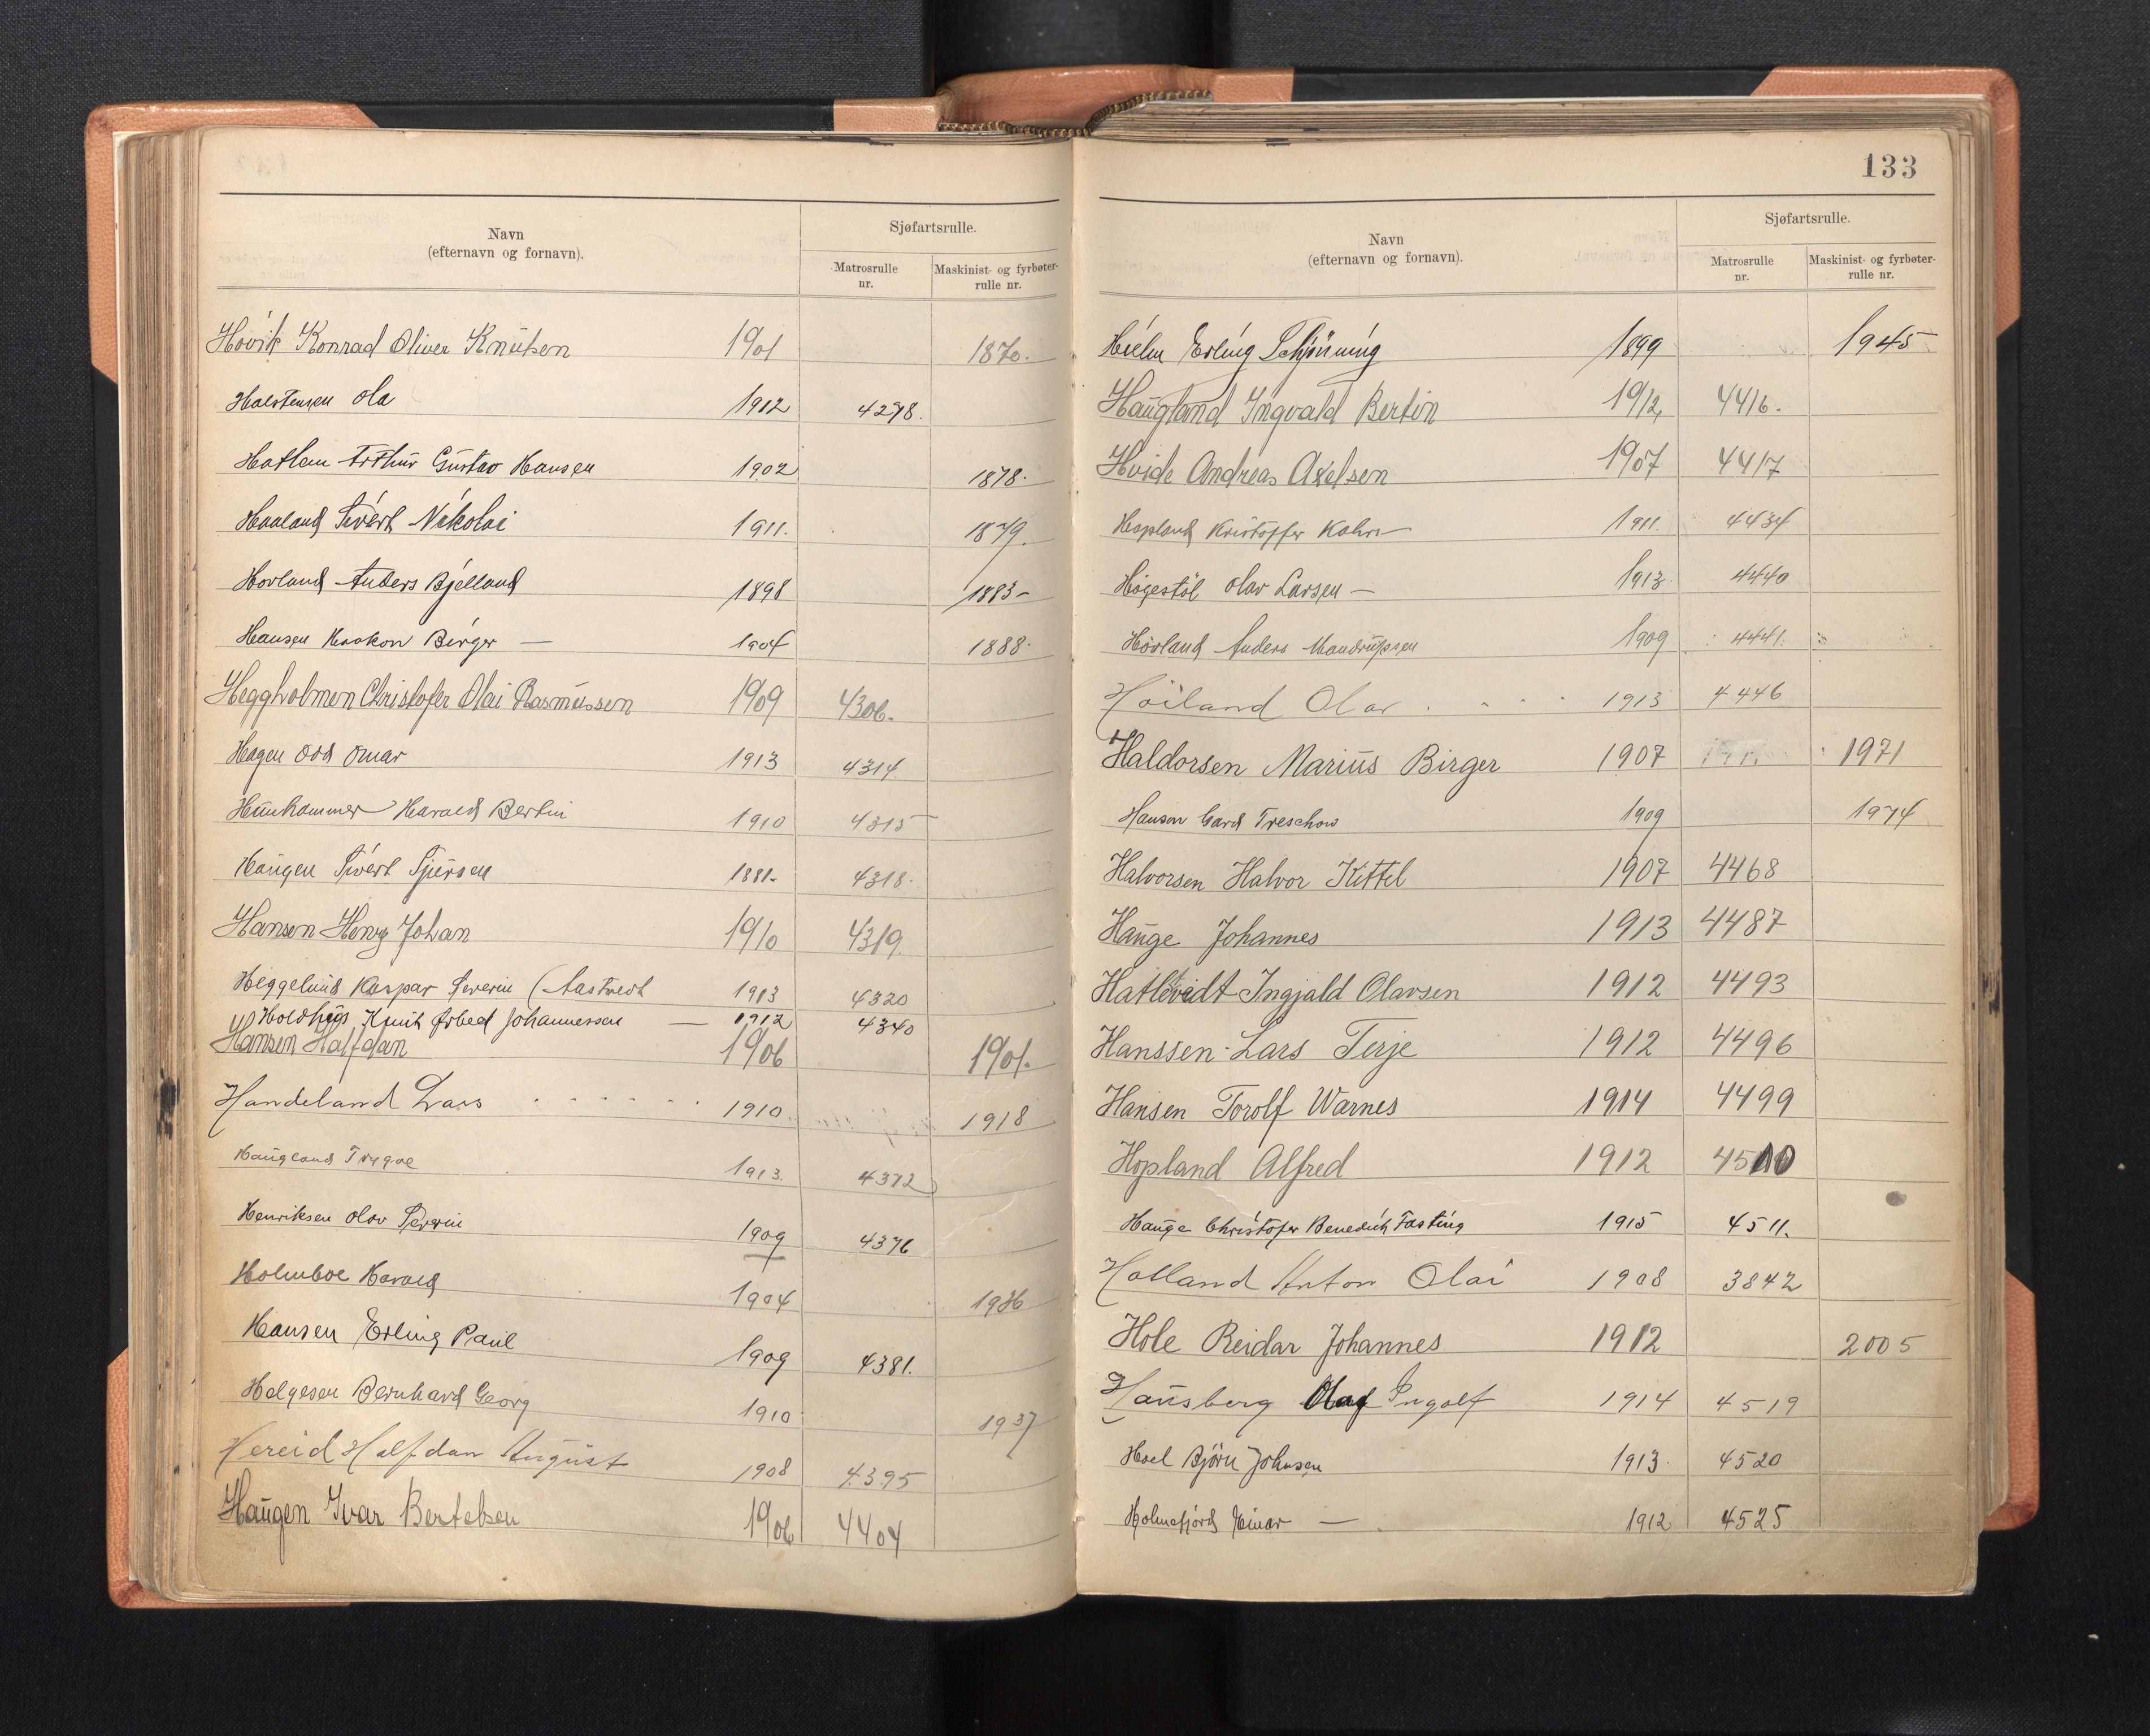 Navn
(efternavn og fornavn).
Sjøfartsrulle.
Matrosrulle nr.
Maskinist- og fyrbøter-rulle nr.
Hovik Konrad Oliver Knutsen 1901 1870.
Halstensen Ola 1912 4298.
Hatlem Arthur Gustav Hansen 1902 1878.
Haaland Sivert Nikolai 1911. 1879.
Hovland Anders Bjelland 1898 1883-
Hansen Haakon Birger — 1904 1888.
Heggholmen Christofer Olai Rasmussen 1909 4306.
Hagen Odd Omar 1913 4314
Hunhammer Harald Bertin 1910 4315
Haugen Sivert Sjursen 1881- 4318.
Hansen Henry Johan 1910 4319.
Heggelund Kaspar Severin (Aastvedt 1913 4320
Holdhus Knut Johannessen — 1912 4340
Hansen Halfdan 1906 1901.
Handeland Lars 1910. 1918
Haugland Trygve 1913. 4372
Henriksen Olav Severin 1909 4376
Holmboe Harald 1904 1936
Hansen Erling Paul 1909 4381.
Helgesen Bernhard Georg 1910 1937
Hereid Halfdan August 1908 4395
Haugen Ivar Bertelsen 1906 4404
133
Navn
(efternavn og fornavn).
Sjøfartsrulle.
Matrosrulle nr.
Maskinist- og fyrbøter-rulle nr.
Hielm Erling Schjöning 1899 1945
Haugland Ingvald Bertin 1912, 4416.
Hvide Andreas Axelsen 1907 4417
Hopland Kristoffer 1911. 4434
Høgestøl Olav Larsen — 1913. 4440
Hövland Anders Mandrupsen 1909 4441.
Höiland Olav 1913 4446
Haldorsen Marius Birger 1907 1971
Hanson Gard Treschow 1909 1974
Halvorsen Halvor Kittel 1907 4468
Hauge Johannes 1913 4487
Hatlevidt Ingjald Olavsen 1912 4493
Hanssen Lars Terje 1912 4496
Hansen Torolf Warnes 1914 4499
Hopland Alfred 1912 4510
Hauge Christofer Benedich Fasting 1915 4511.
Holland Anton Olai 1908 3842
Hole Reidar Johannes 1912 2005
Hausberg Olaf Ingolf 1914 4519
Hoel Björn Johnsen 1913. 4520
Holmefjord Einar — 1912 4525